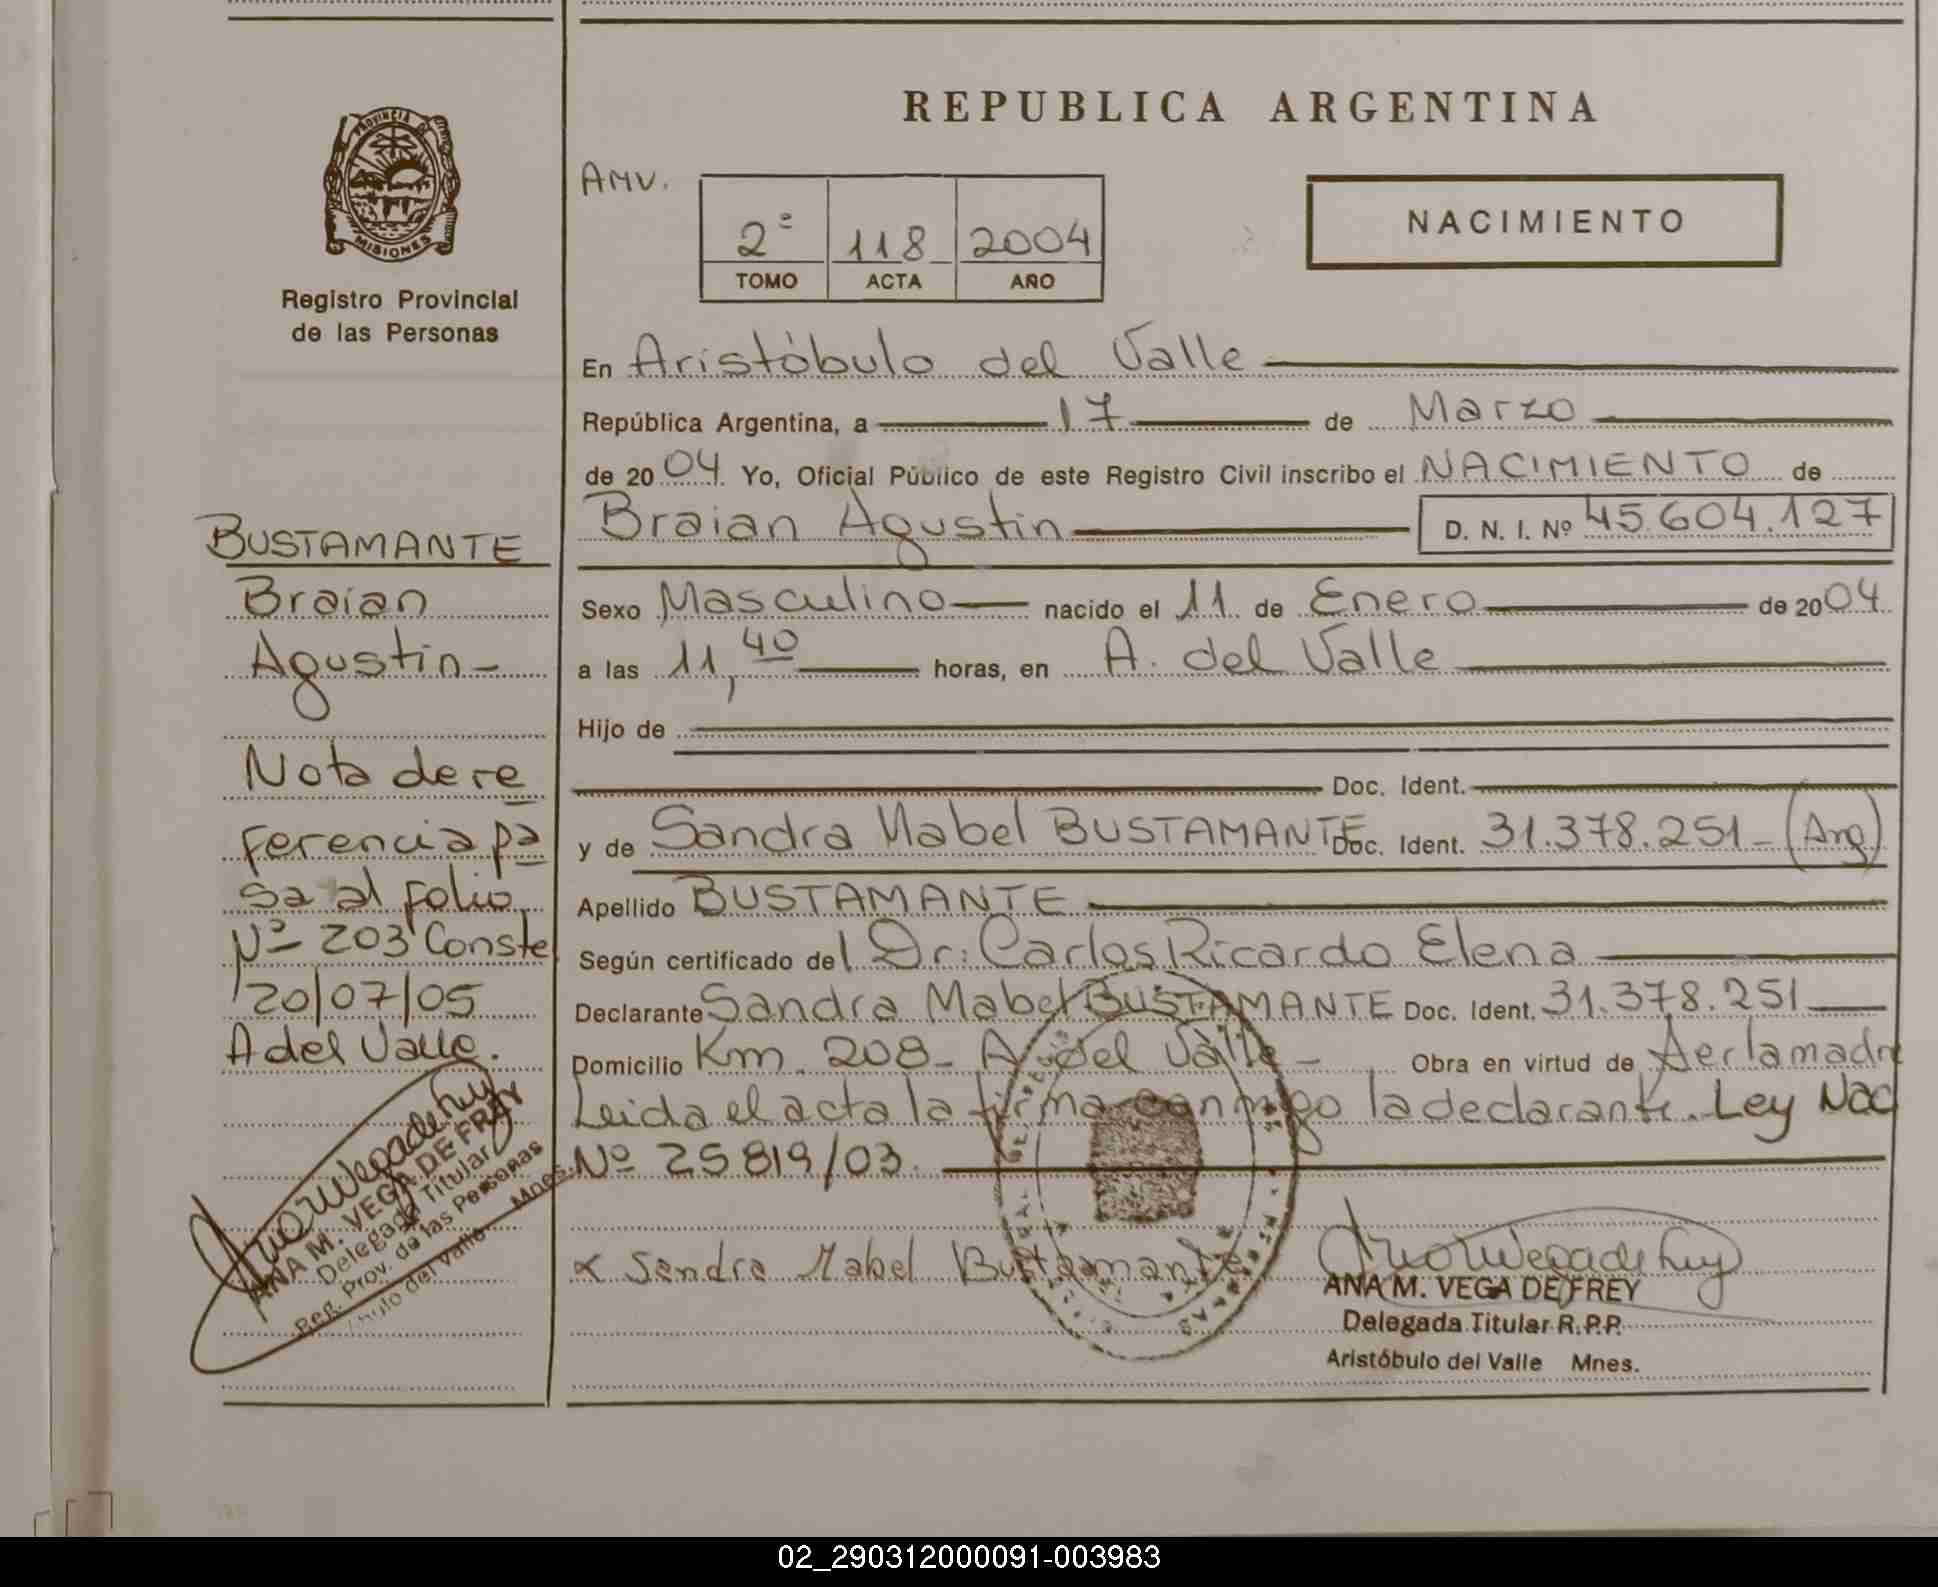 REPUBLICA ARGENTINA
PROVINCIA DE
MISIONES
Registro Provincial
de las Personas
AMV.
2º 118 2004
TOMO ACTA AÑO
NACIMIENTO
En Aristóbulo del Valle
República Argentina, a 17 de Marzo
de 2004 Yo, Oficial Público de este Registro Civil inscribo el NACIMIENTO de
Braian Agustin D. N. I. Nº 45.604.127
Sexo Masculino nacido el 11 de Enero de 2004
a las 11,40 horas, en A. del Valle
Hijo de
Doc. Ident.
y de Sandra Mabel BUSTAMANTE Doc. Ident. 31.378.251- (Arg)
Apellido BUSTAMANTE
Según certificado del Dr: Carlos Ricardo Elena
Declarante Sandra Mabel BUSTAMANTE Doc. Ident. 31.378.251
Domicilio Km. 208- A. del Valle- Obra en virtud de ser la madre
Leida el acta la firma conmigo la declarante. Ley Nac
Nº 25819/03.
Sandra Mabel Bustamante
ANA M. VEGA DE FREY
Delegada Titular R.P.P.
Aristóbulo del Valle Mnes.
BUSTAMANTE
Braian
Agustin-
Nota de re
ferencia pa
sa al folio
Nº 203 Conste
20/07/05
A del Valle.
ANA M. VEGA DE FREY
Delegada Titular
Reg. Prov. de las Personas
del Valle Mnes.
02_290312000091-003983